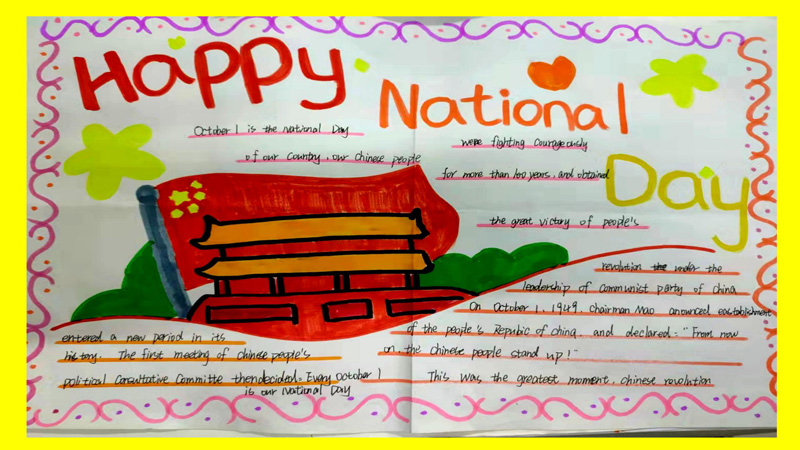 Happy
National
Day
October 1 is the National Day
of our country, our Chinese people
were fighting courageously
for more than 100 years, and obtained
the great victory of people's
revolution the under the
leadership of Communist party of China
On October 1, 1949, chairman Mao anounced
of the people's Repubic of china, and declared: "From now
on, the chinese people stand up!"
This was the greatest moment, chinese revolution
entered a new period in its
history. The first meeting of chinese people's
political Consultative Committe then decided: Every October 1
is our National Day